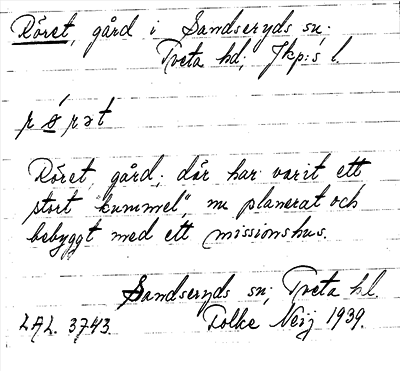 Röret, gård i Sandseryds sn;
Tveta hd; Jkp:s l.
rǿrət
Röret, gård; där har varit ett
stort "kummel", nu planerat och
bebyggt med ett missionshus.
Sandseryds sn; Tveta hd.
LAL. 3743. Folke Neij 1939.